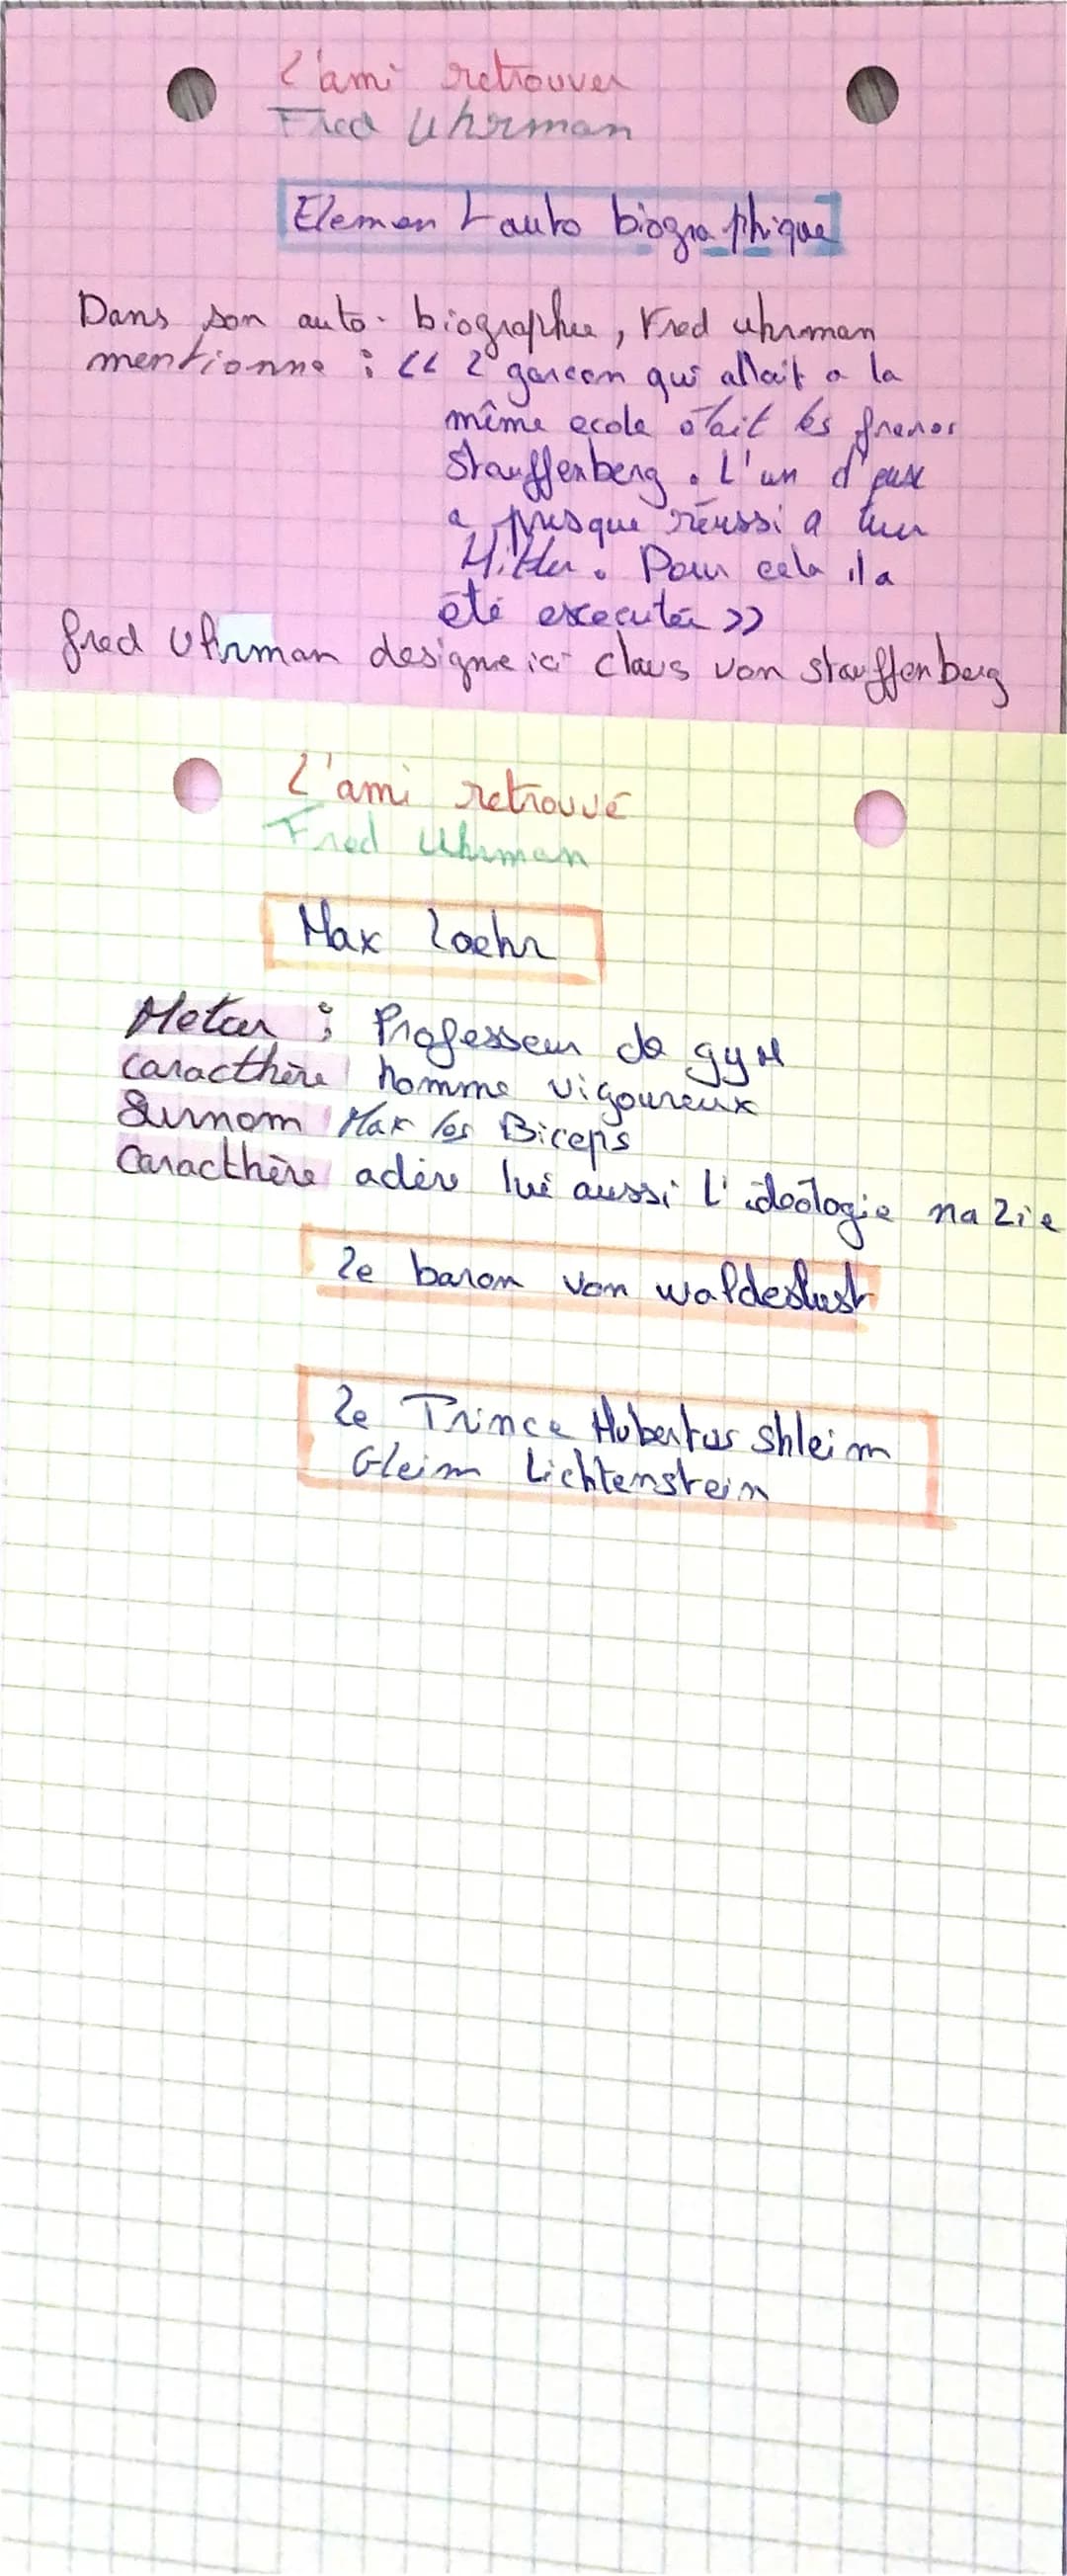 L'ami retrouver
Fred Uhrman
Element auto biographique
Dans son auto-biographie, Fred uhrman
mentionne : << 2 garcon qui allait a la
même ecole était les freres
Stauffenberg. L'un d'eux
a presque réussi a tuer
Hitler. Pour cela il a
été executée >>
fred Uhrman designe ici claus von stauffenberg
L'ami retrouvé
Fred Uhrman
Max Loehr
Metier : Professeur de gym
caracthère homme vigoureux
Surnom Max les Biceps
Caracthère adère lui aussi l'idéologie nazie
Le baron von waldeslust
Le Prince Hubertus shleim
Gleim Lichtenstein